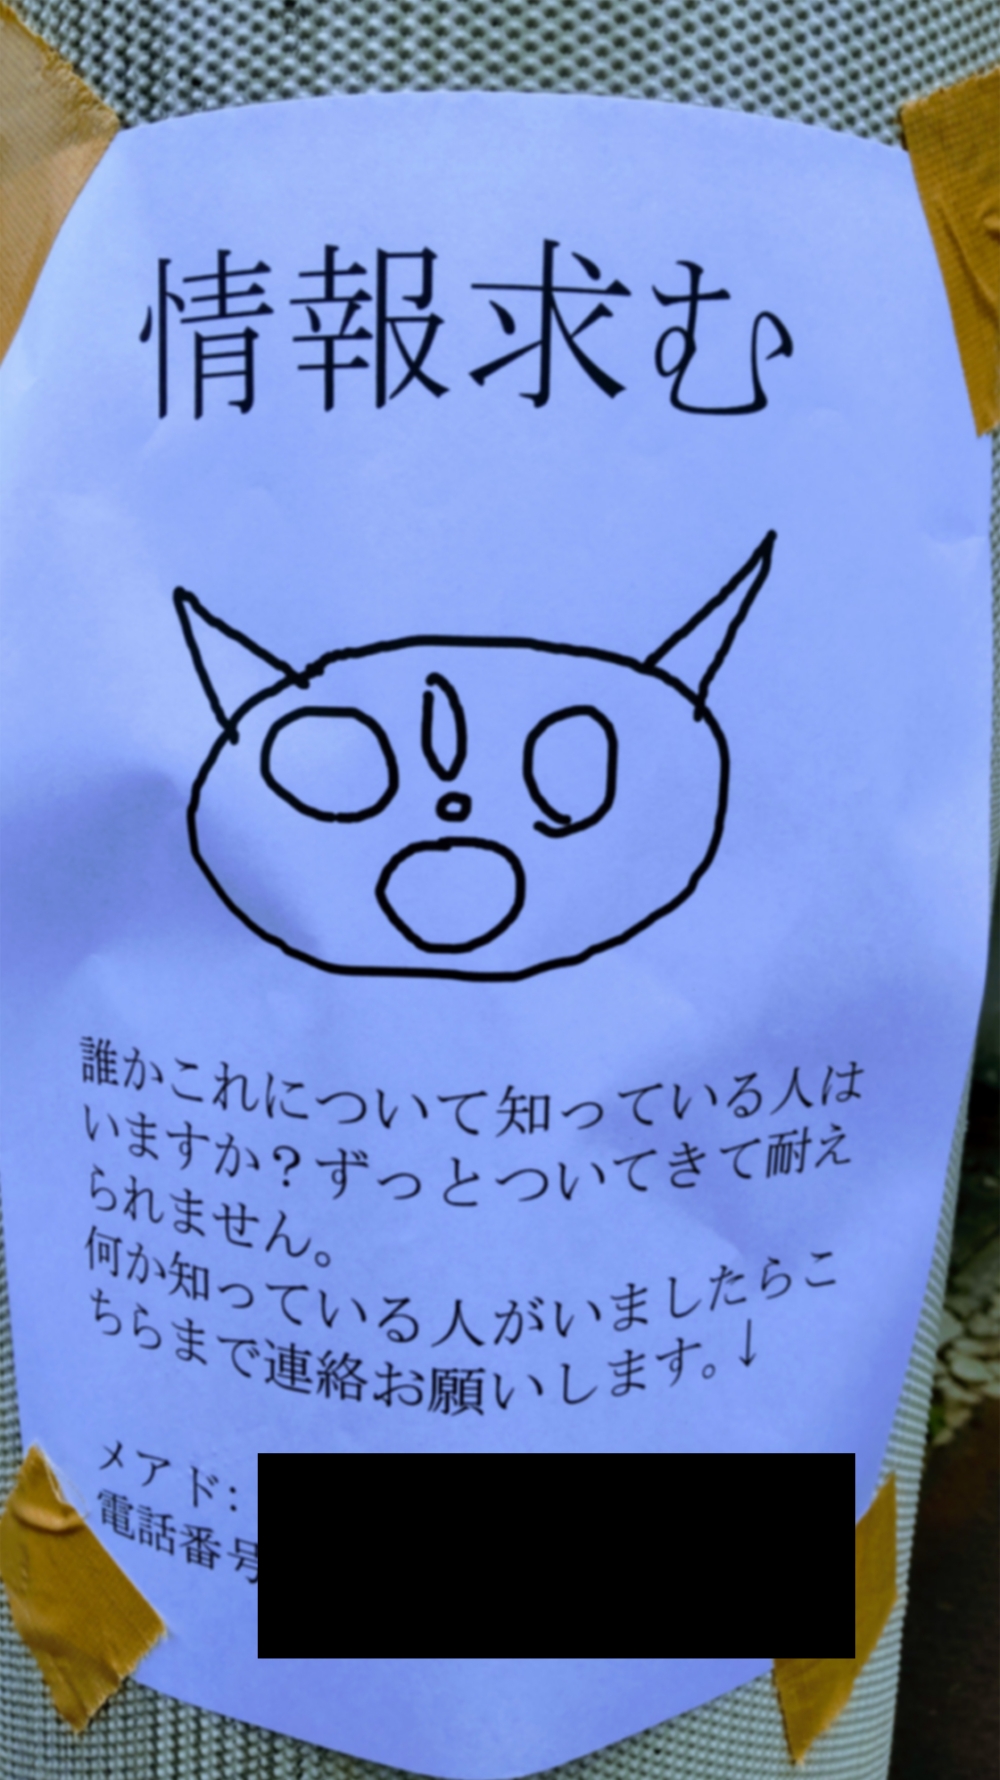 情報求む
誰かこれについて知っている人は
いますか？ずっとついてきて耐え
られません。
何か知っている人がいましたらこ
ちらまで連絡お願いします。↓
メアド：
電話番号